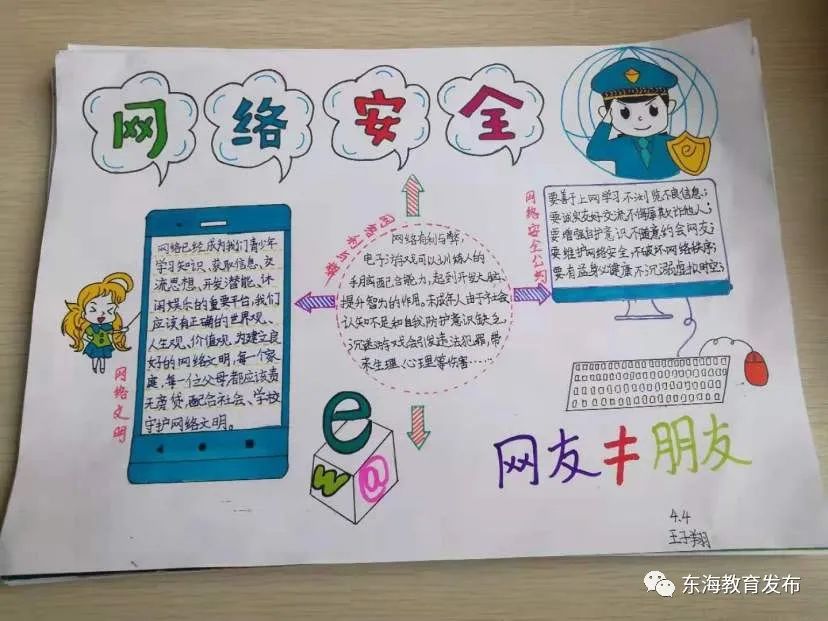 网络安全
网络已经成为我们青少年
学习知识、获取信息、交
流思想、开发智能、休
闲娱乐的重要平台,我们
应该有正确的世界观、
人生观、价值观,为建立良
好的网络文明,每一个家
庭,每一位父母都应该责
无旁贷,配合社会、学校
守护网络文明。
网络文明
网络利与弊
网络有利与弊,
电子游戏可以训练人的
手脑配合能力,起到开发大脑
提升智力的作用。未成年人由于社会
认知不足和自我防护意识缺乏,
沉迷游戏会引发违法犯罪,带
来生理、心理等伤害……
网络安全公约
要善于上网学习 不浏览不良信息;
要诚实友好交流 不侮辱欺诈他人;
要增强自护意识 不随意约会网友;
要维护网络安全 不破坏网络秩序;
要有益身心健康 不沉溺虚拟时空;
e
w @
网友≠朋友
4.4
王子翔
东海教育发布